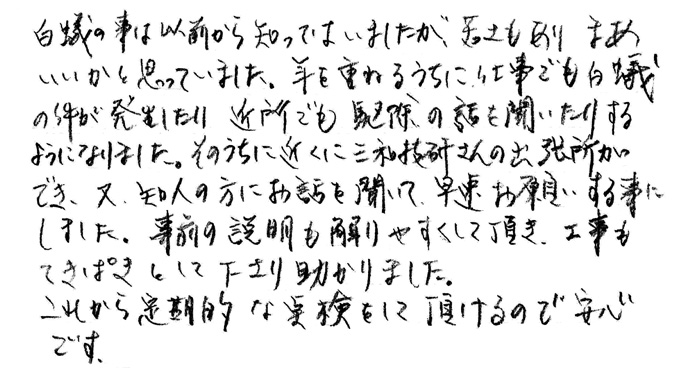 白蟻の事は以前から知ってはいましたが、若さもあり まあ
いいかと思っていました。年を重ねるうちに、仕事でも白蟻
の件が発生したり 近所でも 駆除の話を聞いたりする
ようになりました。そのうちに近くに三和技研さんの出張所が
でき、又、知人の方にお話を聞いて、早速お願いする事に
しました。 事前の説明も解りやすくして頂き、工事も
てきぱきとして下さり助かりました。
これから定期的な点検をして頂けるので安心
です。